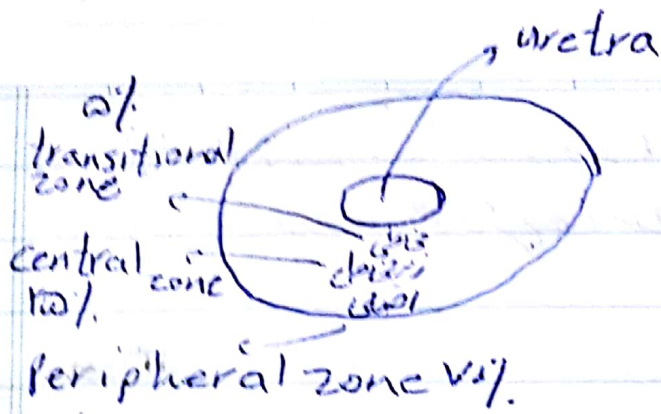 uretra
۵٪
transitional
zone
central zone
۲۵٪.
Peripheral zone ۷۰٪.